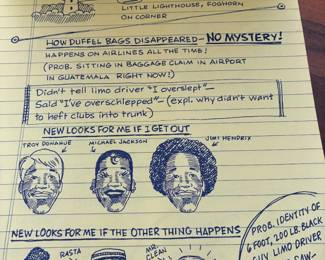 LITTLE LIGHTHOUSE, FOGHORN
ON CORNER
HOW DUFFEL BAGS DISAPPEARED— NO MYSTERY!
HAPPENS ON AIRLINES ALL THE TIME!
(PROB. SITTING IN BAGGAGE CLAIM IN AIRPORT
IN GUATEMALA RIGHT NOW!)
Didn't tell limo driver "I overslept"—
Said "I've overschlepped"— (expl. why didn't want
to heft clubs into trunk)
NEW LOOKS FOR ME IF I GET OUT
TROY DONAHUE
MICHAEL JACKSON
JIMI HENDRIX
NEW LOOKS FOR ME IF THE OTHER THING HAPPENS
RASTA
MR. CLEAN
PROB. IDENTITY OF
6 FOOT, 200 LB. BLACK
GUY LIMO DRIVER
SAW—